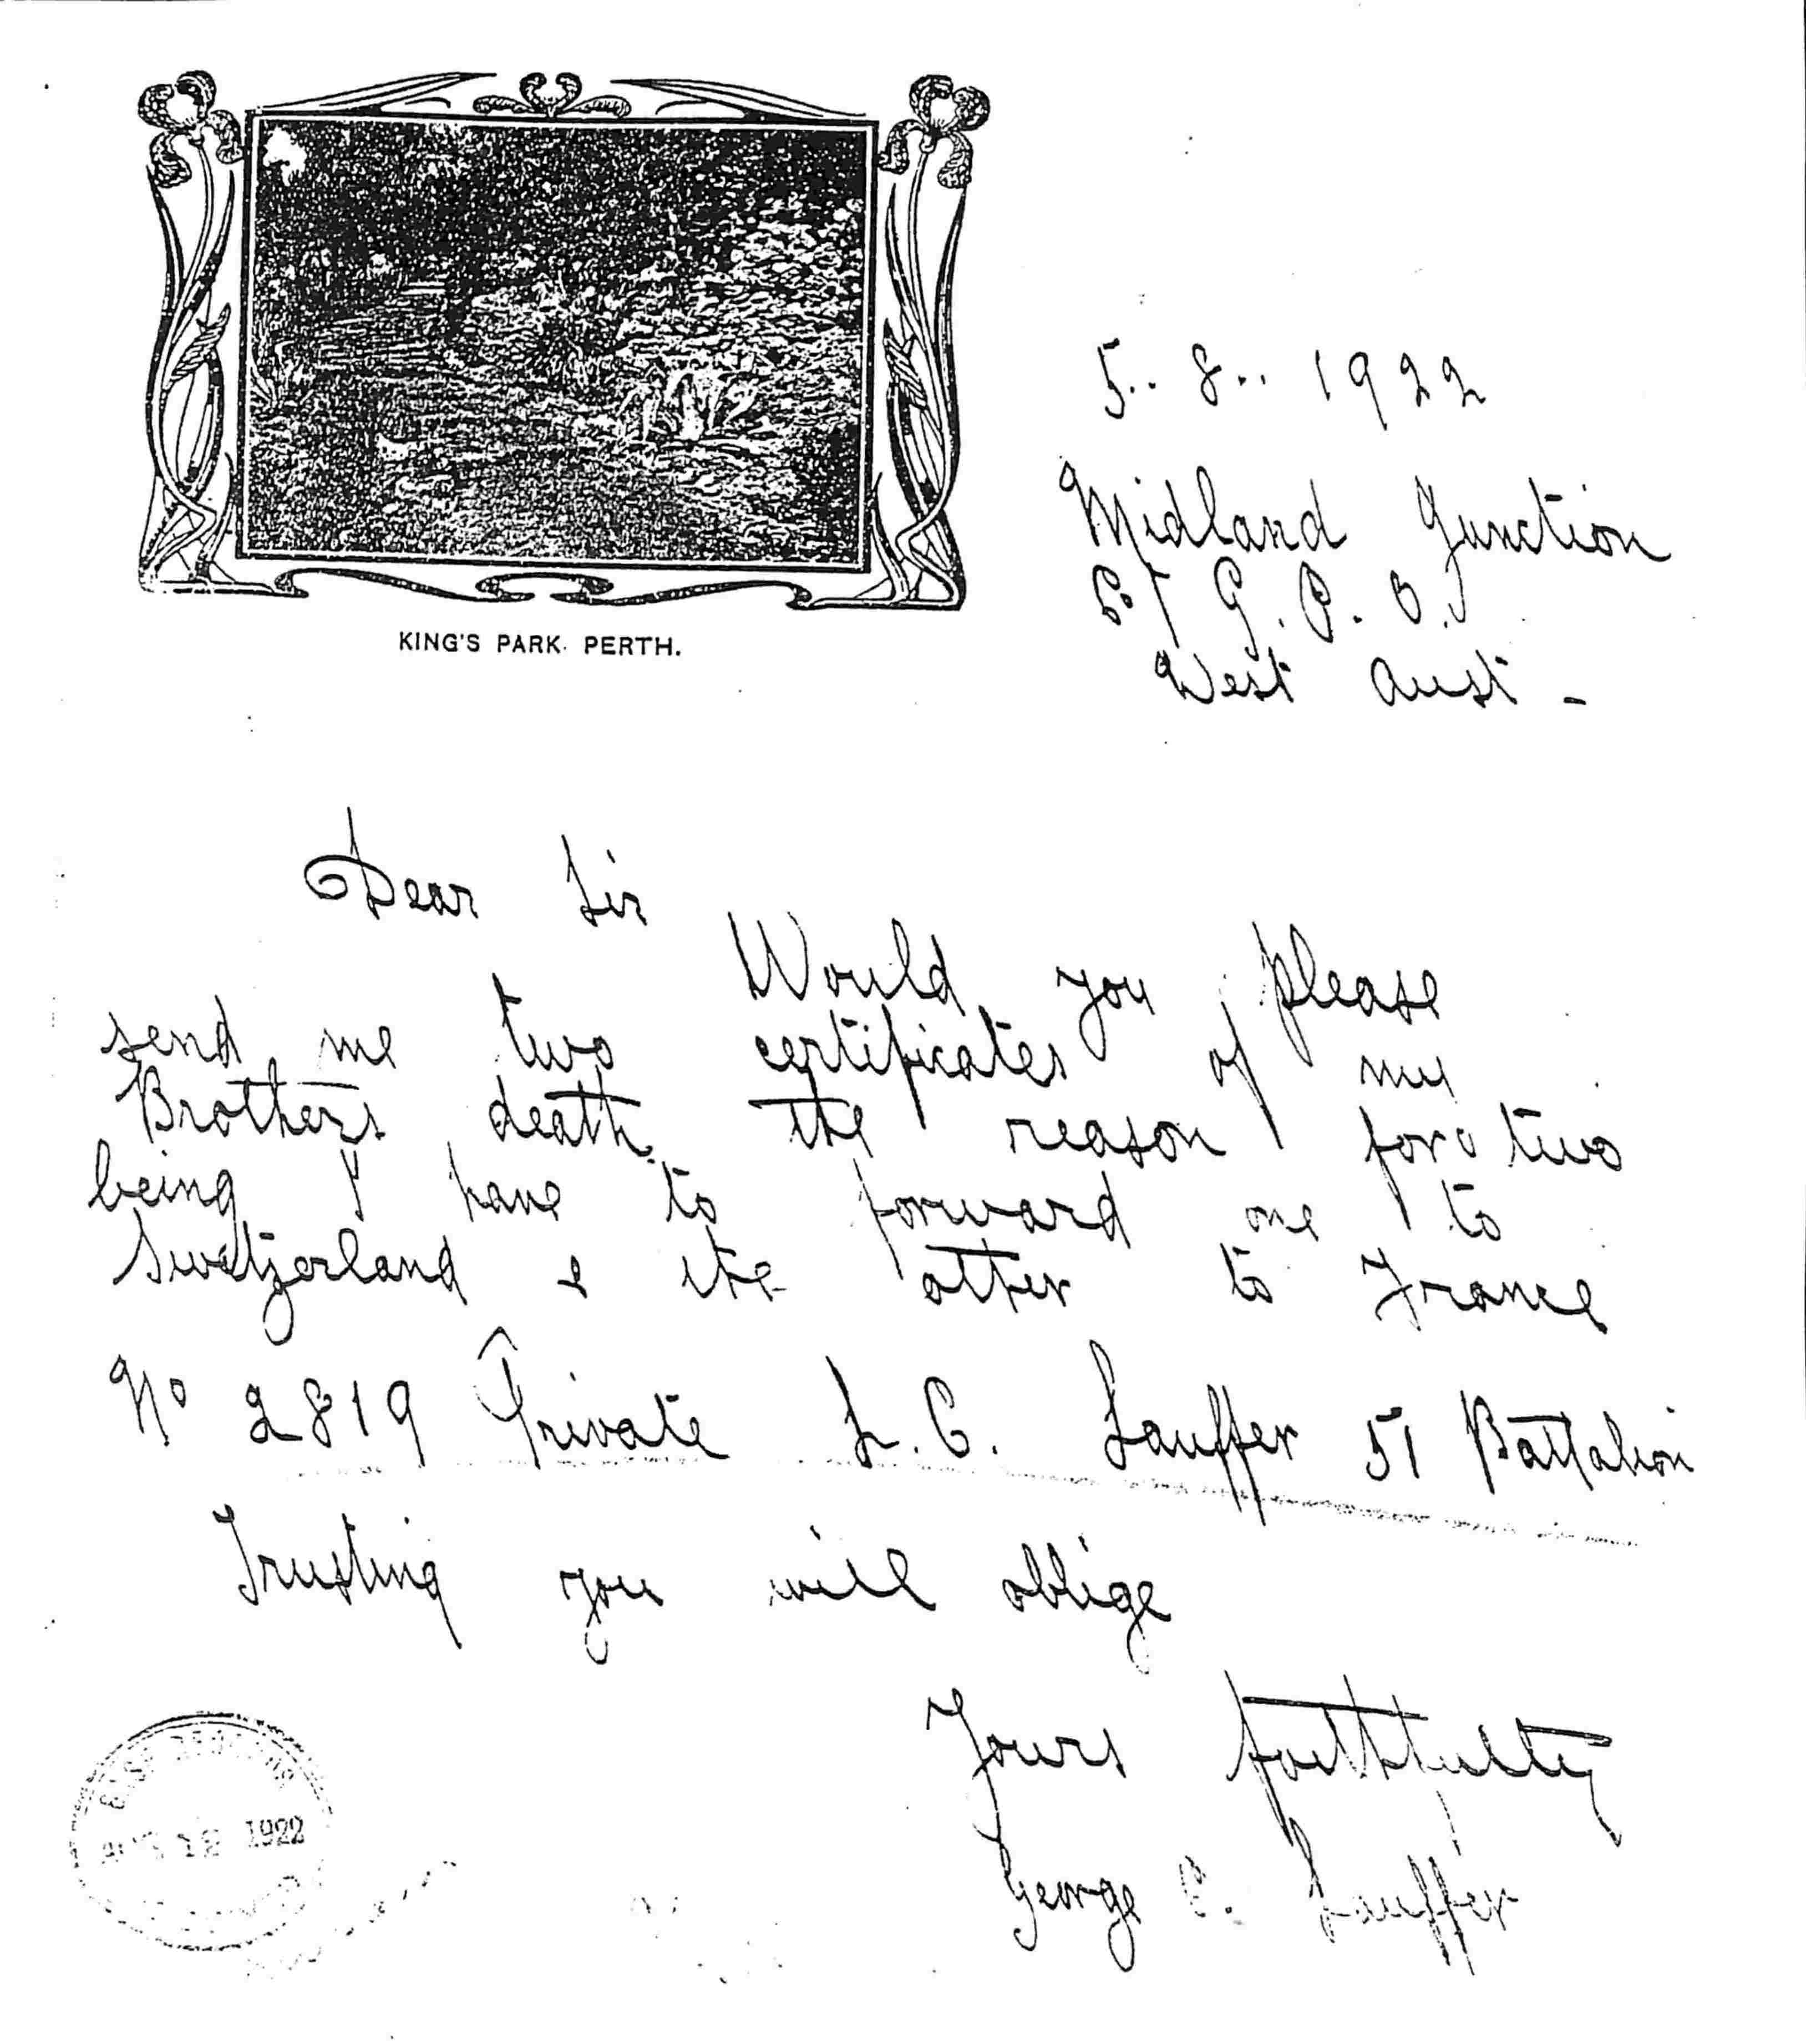 KING'S PARK. PERTH.
5.. 8.. 1922
Midland Junction
G. P. O.
West Aust -
Dear Sir
Would you please
send me two certificates of my
Brothers death. the reason for two
being I have to forward one to
Switzerland & the other to France
No 2819 Private L. C. Lauffer 51 Battalion
Trusting you will oblige
Yours faithfully
George C. Lauffer
1922